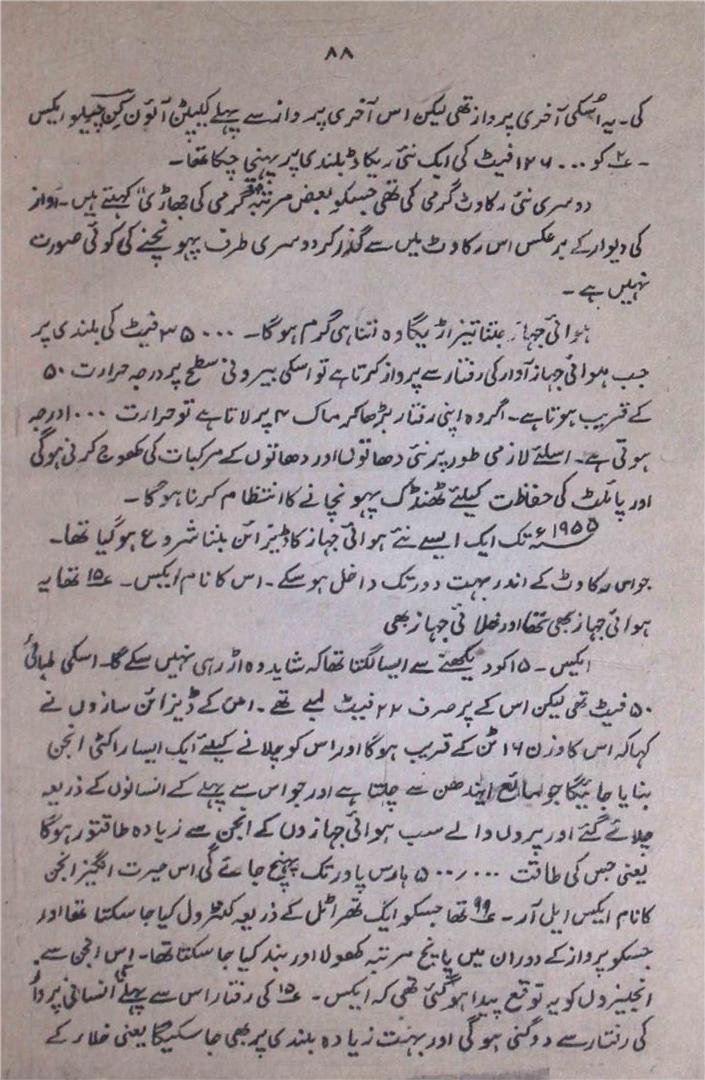 ۸۸
کی۔ یہ اُسکی آخری پرواز تھی لیکن اس آخری پرواز سے پہلے کیپٹن آئون کن چیلو ایکس
۔ ۲؎ کو ۱۲۶۰۰۰ فیٹ کی ایک نئی ریکارڈ بلندی پر پہنچی چکا تھا۔
دوسری نئی رکاوٹ گرمی کی تھی جسکو بعض مرتبہ "گرمی کی جھاڑی" کہتے ہیں۔ آواز
کی دیوار کے برعکس اس رکاوٹ میں سے گذر کر دوسری طرف پہونچنے کی کوئی صورت
نہیں ہے۔
ہوائی جہاز جتنا تیز اڑیگا وہ اتنا ہی گرم ہوگا۔ ۳۵۰۰۰ فیٹ کی بلندی پر
جب ہوائی جہاز آواز کی رفتار سے پرواز کرتا ہے تو اسکی بیرونی سطح پر درجہ حرارت ۵۰
کے قریب ہوتا ہے۔ اگر وہ اپنی رفتار بڑھا کر ماک ۴ پر لاتا ہے تو حرارت ۱۰۰۰ درجہ
ہوتی ہے۔ اسلئے لازمی طور پر نئی دھاتوں اور دھاتوں کے مرکبات کی کھوج کرنی ہوگی
اور پائلٹ کی حفاظت کیلئے ٹھنڈک پہونچانے کا انتظام کرنا ہوگا۔
۱۹۵۵ء تک ایک ایسے نئے ہوائی جہاز کا ڈیزائن بننا شروع ہوگیا تھا۔
جو اس رکاوٹ کے اندر بہت دور تک داخل ہوسکے۔ اس کا نام ایکس۔ ۱۵؎ تھا یہ
ہوائی جہاز بھی تھا اور خلائی جہاز بھی
ایکس۔ ۱۵ کو دیکھنے سے ایسا لگتا تھا کہ شاید وہ اڑ ہی نہیں سکے گا۔ اسکی لمبائی
۵۰ فیٹ تھی لیکن اس کے پر صرف ۲۲ فیٹ لمبے تھے۔ اس کے ڈیزائن سازوں نے
کہا کہ اس کا وزن ۱۶ ٹن کے قریب ہوگا اور اس کو چلانے کیلئے ایک ایسا راکٹی انجن
بنایا جائیگا جو مائع ایندھن سے چلتا ہے اور جو اس سے پہلے کے انسانوں کے ذریعہ
چلائے گئے اور پروں والے سب ہوائی جہازوں کے انجن سے زیادہ طاقتور ہوگا
یعنی جس کی طاقت ۵۰۰٫۰۰۰ ہارس پاور تک پہنچ جائے گی اس حیرت انگیز انجن
کا نام ایکس ایل آر۔ ۹۹؎ تھا جسکو ایک تھراٹل کے ذریعہ کنٹرول کیا جاسکتا تھا اور
جسکو پرواز کے دوران میں پانچ مرتبہ کھولا اور بند کیا جاسکتا تھا۔ اس انجن سے
انجنیروں کو یہ توقع پیدا ہوگئی تھی کہ ایکس۔ ۱۵؎ کی رفتار اس سے پہلے انسانی پرواز
کی رفتار سے دوگنی ہوگی اور بہت زیادہ بلندی پر بھی جاسکیگا یعنی خلار کے